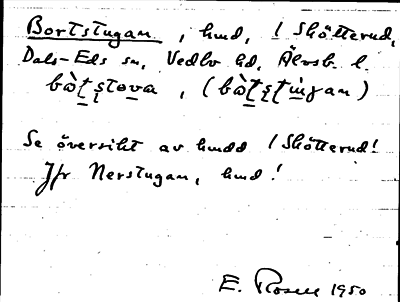 Bortstugan, hmd, / Skötterud,
Dals-Eds sn, Vedbo hd, Älvsb. l.
bòt̯s̨tova, (bòt̯s̨tin̥gan)
Se översikt av hmdd / Skötterud!
Jfr Nerstugan, hmd!
E. Rosell 1950